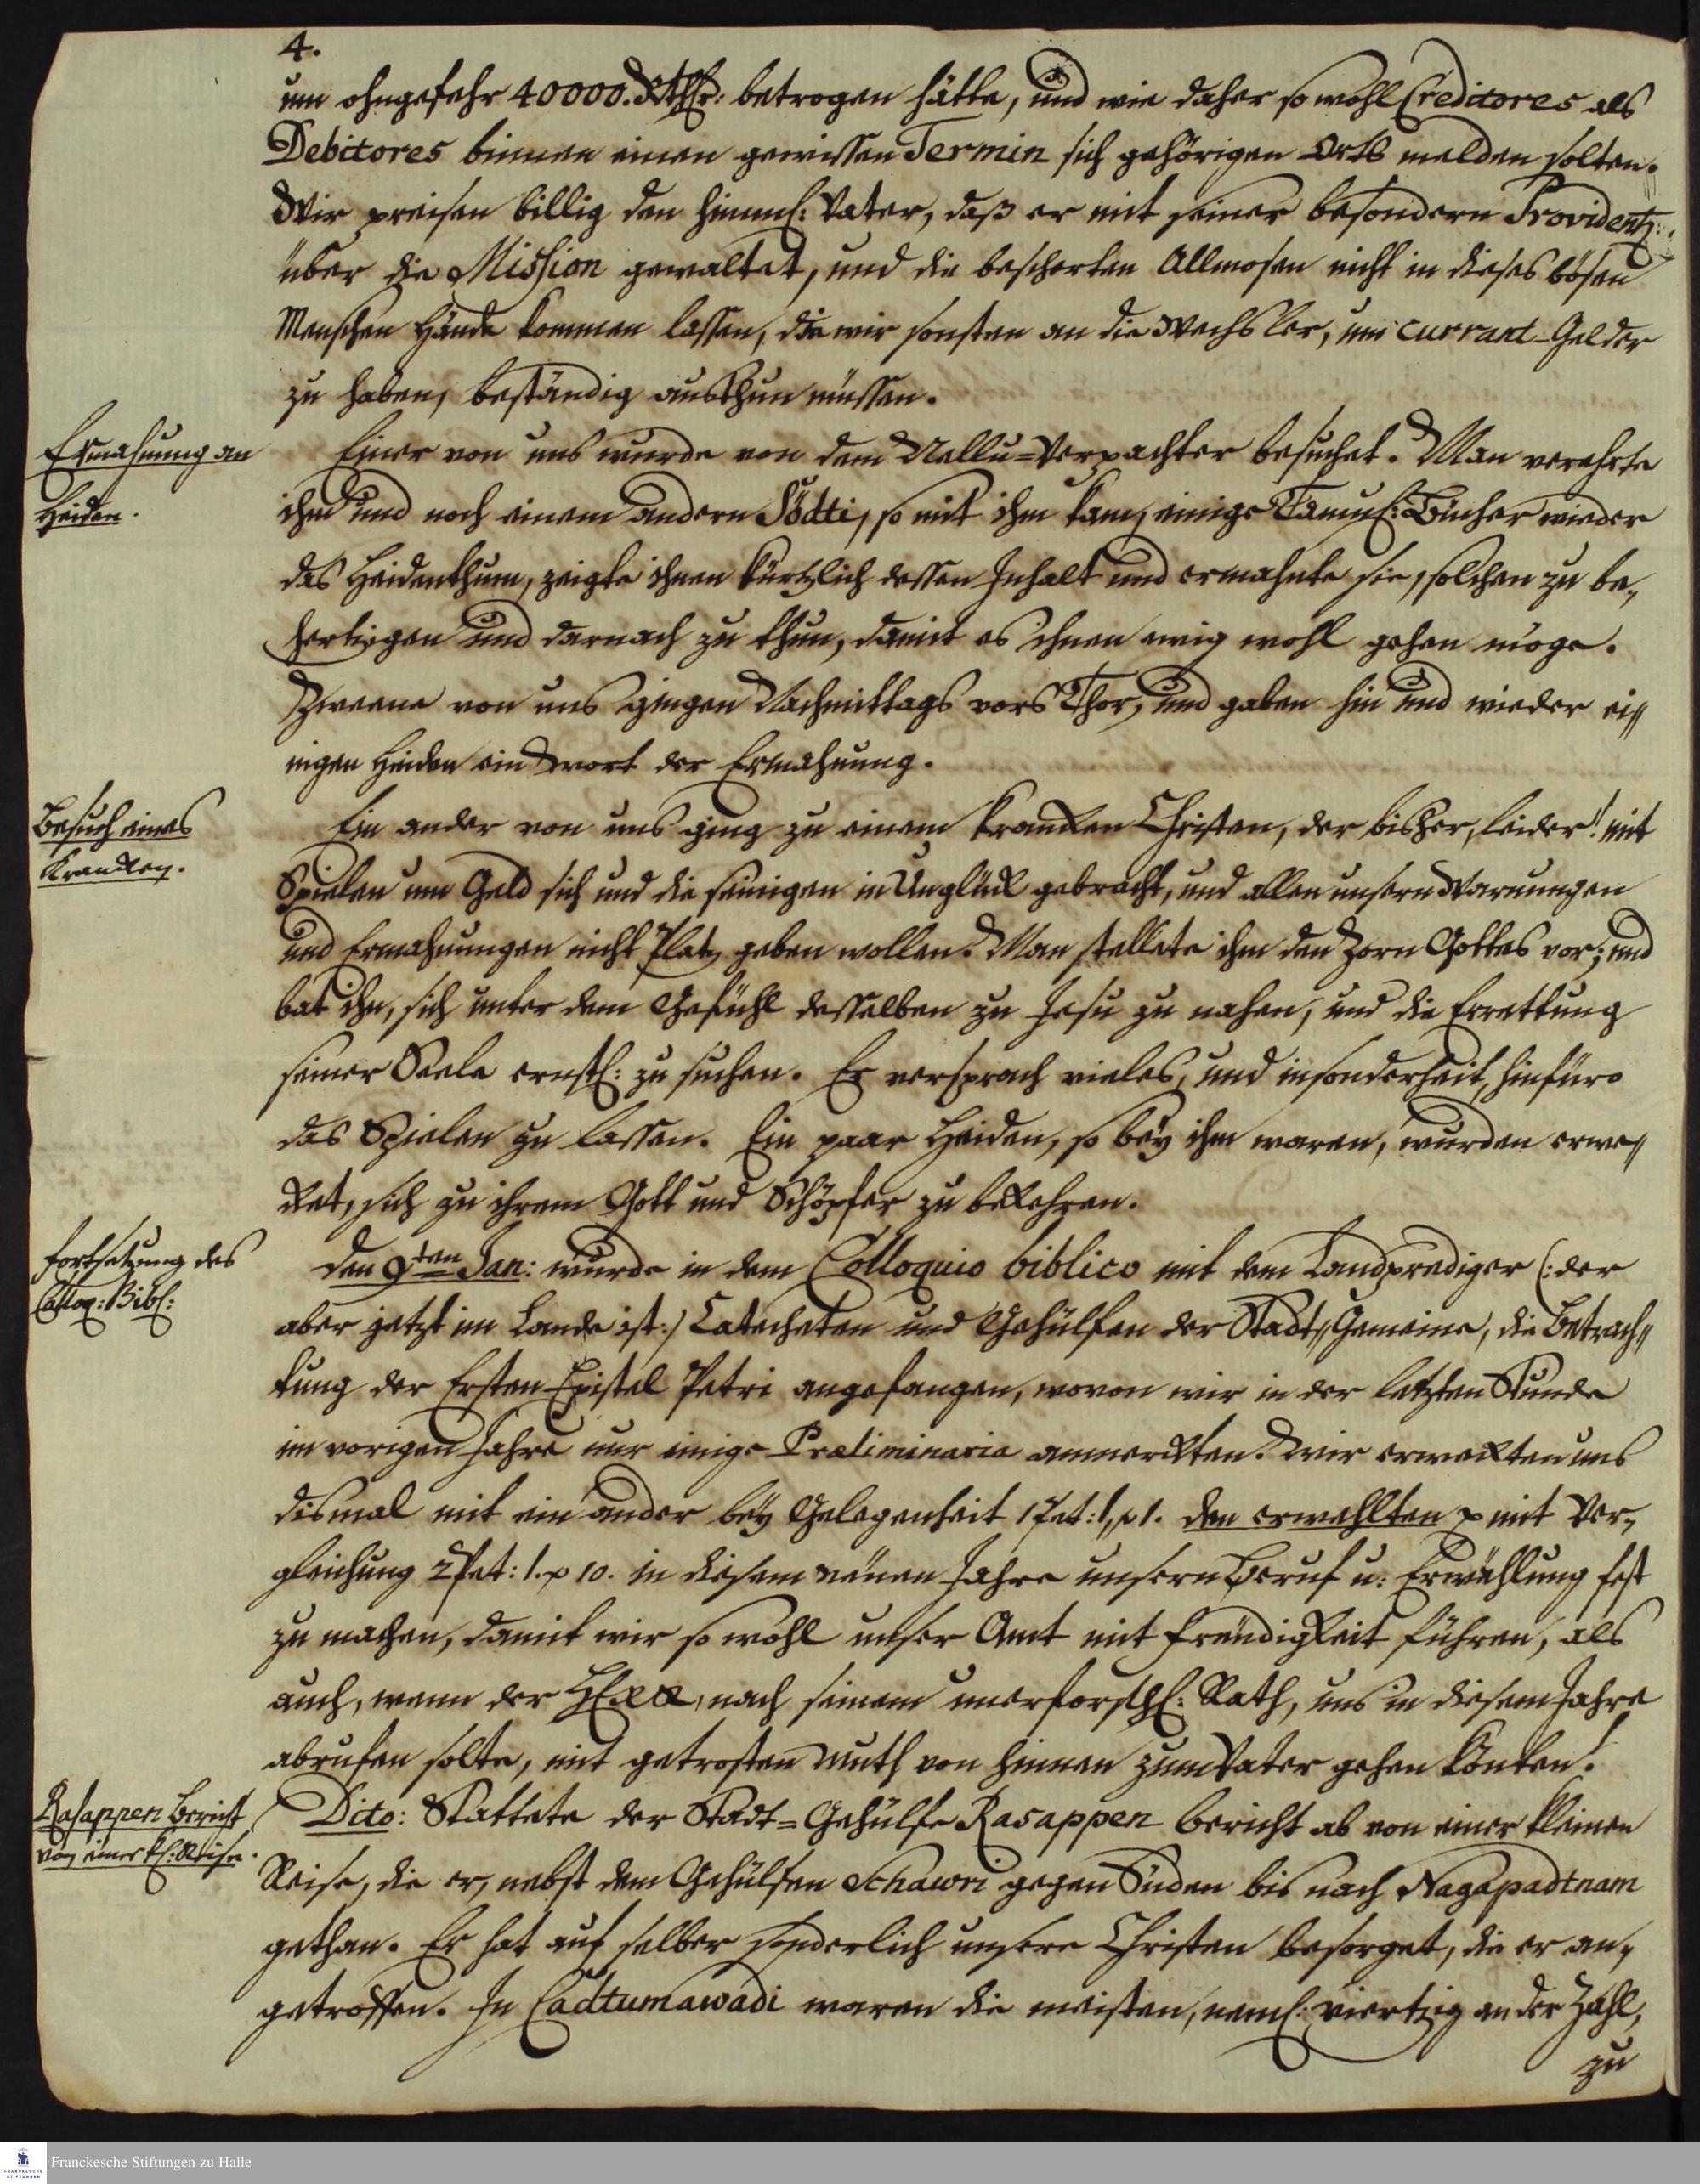 4.
um ohngefehr 40000. Rthlr: betrogen hätte, und wie daher so wohl Creditores als
Debitores binnen einen gewissen Termin sich gehörigen Orts melden solten.
Wir preisen billig den himml: Vater, daß er mit seiner besondern Providentz
über die Mission gewaltet, und die bescherten Allmosen nicht in dieses bösen
Menschen Hände kommen lassen, die wir sonsten an die Wechsler, um currant-Gelder
zu haben, beständig austhun müssen.
Ermahnung an
Heiden.
Einer von uns wurde von dem Nellu=Verpachter besuchet. Man verehrte
ihm und noch einem andern Södti, so mit ihm kam, einige Tamul: Bücher wieder
das Heidenthum, zeigte ihnen kürtzlich dessen Inhalt und ermahnte sie, solchen zu be-
hertzigen und darnach zu thun, damit es ihnen ewig wohl gehen möge.
Zweene von uns gingen Nachmittags vors Thor, und gaben hin und wieder ei-
nigen Heiden ein Wort der Ermahnung.
Besuch eines
Krancken.
Ein ander von uns ging zu einem krancken Christen, der bisher, leider! mit
Spielen um Geld sich und die seinigen in Unglück gebracht, und allen unsern Warnungen
und Ermahnungen nicht Platz geben wollen. Man stellete ihm den Zorn Gottes vor; und
bat ihn, sich unter dem Gefühl desselben zu Jesu zu nahen, und die Errettung
seiner Seele ernstl: zu suchen. Er versprach vieles, und insonderheit, hinfüro
das Spielen zu lassen. Ein paar Heiden, so bey ihm waren, wurden erwe-
cket, sich zu ihrem Gott und Schöpfer zu bekehren.
Fortsetzung des
Colloq: Bibl:
Den 9ten Jan: wurde in dem Colloquio biblico mit dem Landprediger (: der
aber jetzt im Lande ist :) Catecheten und Gehülfen der Stadt-Gemeine, die Betrach-
tung der Ersten Epistel Petri angefangen, wovon wir in der letzten Stunde
im vorigen Jahre nur einige Præliminaria anmerckten. Wir erweckten uns
dismal mit ein ander bey Gelegenheit 1 Pet: 1, v 1. den erwehlten p mit Ver-
gleichung 2 Pet: 1. v 10. in diesem neuen Jahre unsern Beruf u: Erwählung fest
zu machen, damit wir so wohl unser Amt mit Freudigkeit führen, als
auch, wenn der HErr, nach seinem unerforschl: Rath, uns in diesem Jahre
abrufen solte, mit getrosten Muth von hinnen zum Vater gehen könten!
Rasappen Bericht
von einer kl: Reise.
Dito: Stattete der Stadt=Gehülfe Rasappen Bericht ab von einer kleinen
Reise, die er, nebst dem Gehülfen Schawri gegen Süden bis nach Nagapadtnam
gethan. Er hat auf selber sonderlich unsere Christen besorget, die er an-
getroffen. In Cadtumawadi waren die meisten, neml: viertzig an der Zahl,
zu
Franckesche Stiftungen zu Halle
FRANCKESCHE
STIFTUNGEN